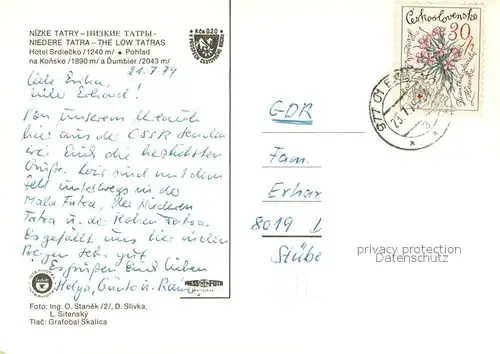 NÍZKE TATRY – НИЗКИЕ ТАТРЫ –
NIEDERE TATRA – THE LOW TATRAS
Hotel Srdiečko /1240 m/ • Pohľad
na Koňsko /1890 m/ a Ďumbier /2043 m/
Kčs 0,20
21.7.79
Liebe Erika,
lieber Erhard!
Von unserem Urlaub
hier aus der CSSR senden
wir Euch die herzlichsten
Grüße. Wir sind mit dem
Zelt unterwegs in der
Mala Fatra, der Niederen
Tatra u. der Hohen Tatra.
Es gefällt uns hier in den
Bergen sehr gut.
Es grüßen Euch lieben
Helga, Günter u.
Foto: Ing. O. Staněk /2/, D. Slivka,
L. Sitenský
Tlač: Grafobal Skalica
PRESSFOTO
Československo
30 h
977 01
GDR
Fam.
Erhar
8019
Stübe
privacy protection
Datenschutz